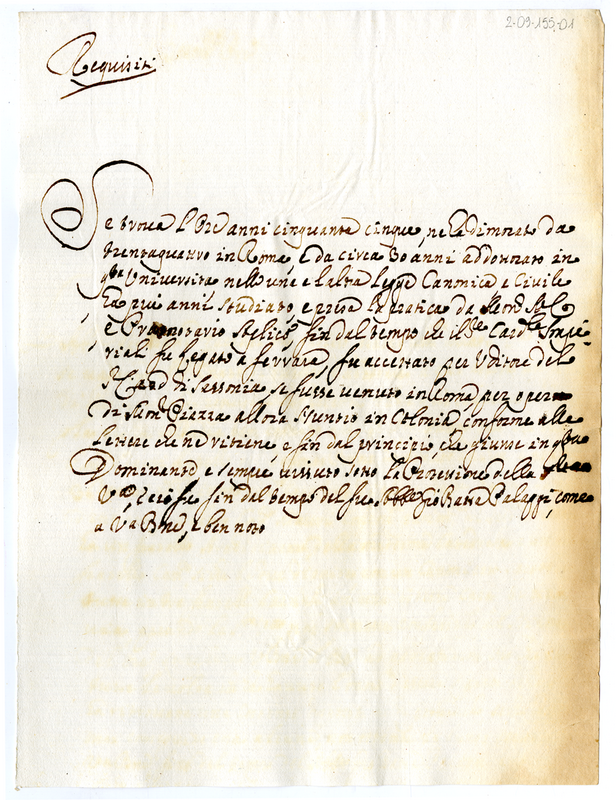 2-09-155-01
Requisiti
Se trova l'Ore anni cinquanta cinque, ne ha dimorato da
trentaquatro in Roma, e da circa 30 anni addottorato in
qta Università nell'una e l'altra Legge Canonica e Civile
Ha più anni studiato, e presa la pratica da
e Protonotario Aplico, fin dal tempo che il Sre Cardle Impe
riali fu legato a ferrara, fu accettato per Uditore del
S. Card di Sassonia se fusse venuto in Roma, per opera
di Monr Piazza allora Nuntio in Colonia, conforme alle
lettere che ne ritiene, e fin dal principio, che giunse in
Dominando e sempre vissuto sotto la Protezione della
Va, e ciò fu fin dal tempo del fu Gio Batta Palaggi, come
a Va Bne, è ben noto